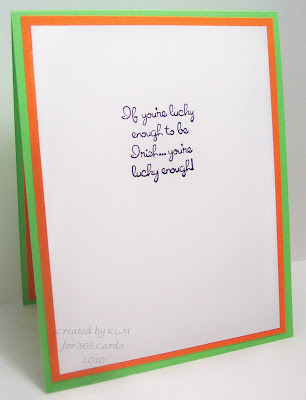 If you're lucky
enough to be
Irish... you're
lucky enough!
Created by KLM
for 365 cards
2010